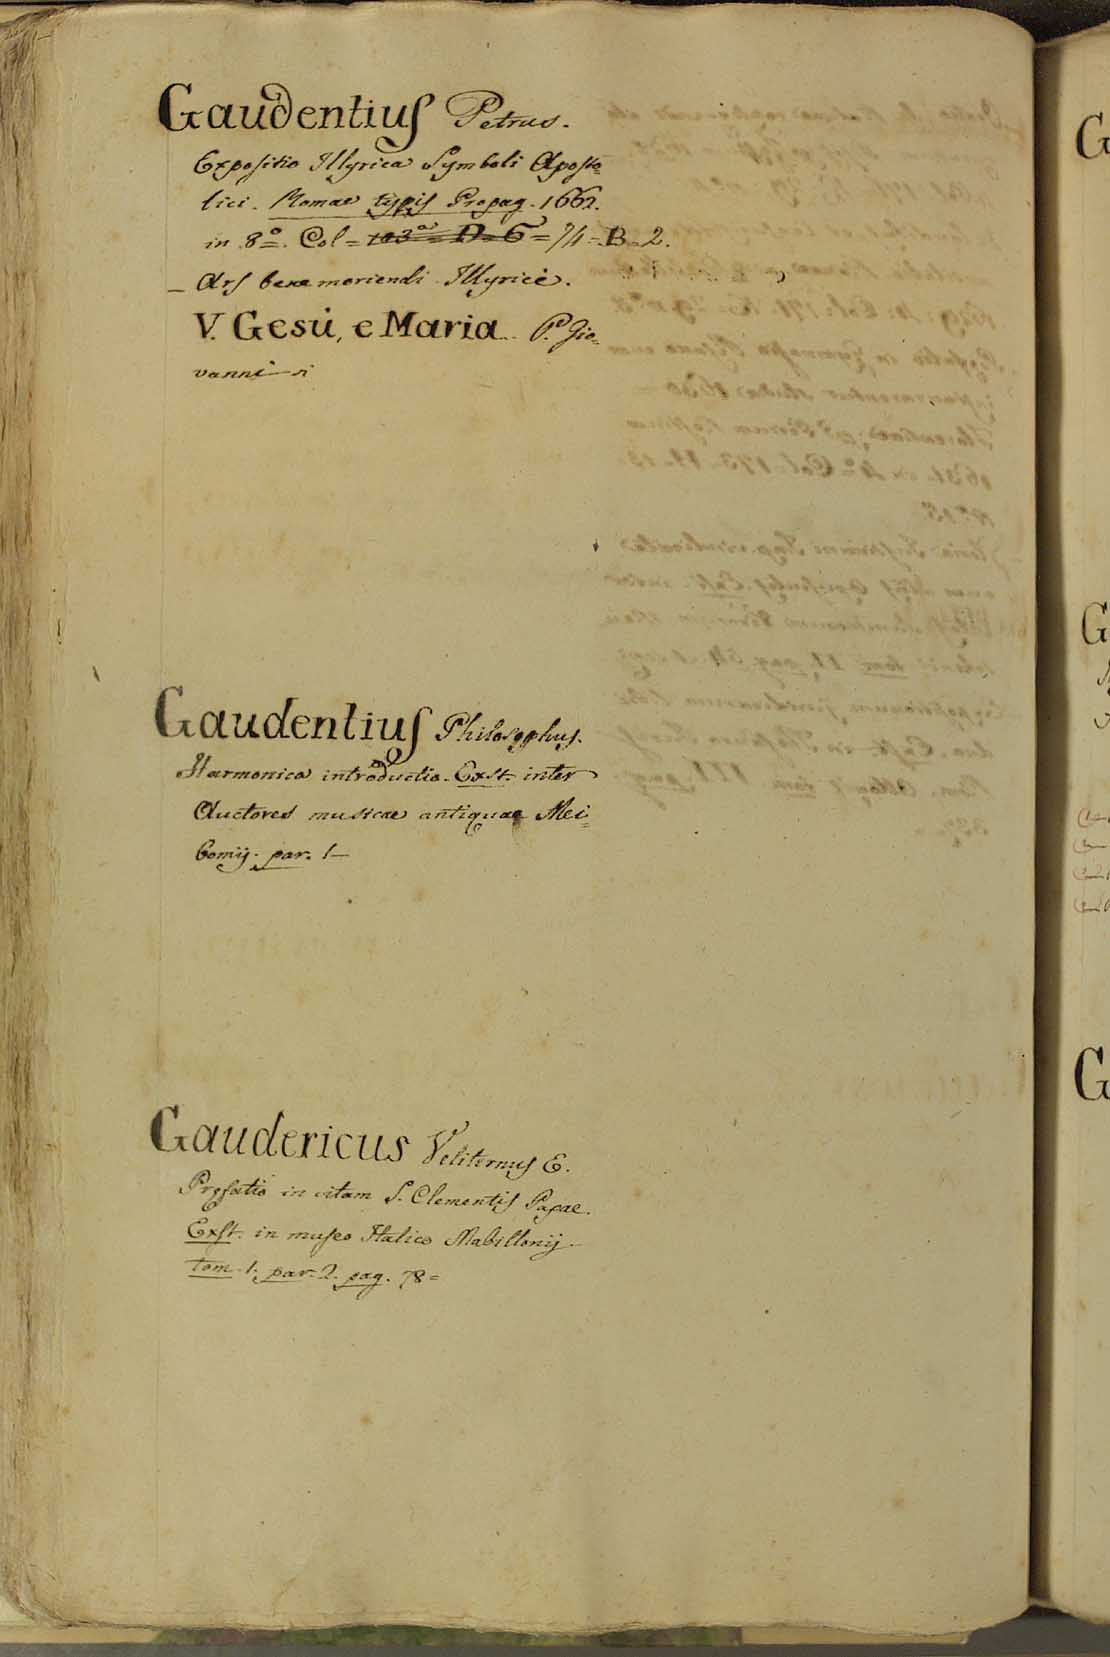 Gaudentius Petrus.
Expositio Illyrica Symboli Aposto=
lici. Romae typis Propag. 1662.
in 8º. Col = 103ª = D = 6 = 74 = B = 2.
_ Ars bene moriendi Illyricè.
V. Gesù, e Maria P. Gio=
vanni
Gaudentius Philosophus.
Harmonica introductio. Exst. inter
Auctores musicae antiquae Mei=
bomij. par. 1
Gaudericus Veliternus E.
Prefatio in vitam S. Clementis Papae.
Exst. in museo Italico Mabillonij
tom. 1. par. 2. pag. 78=